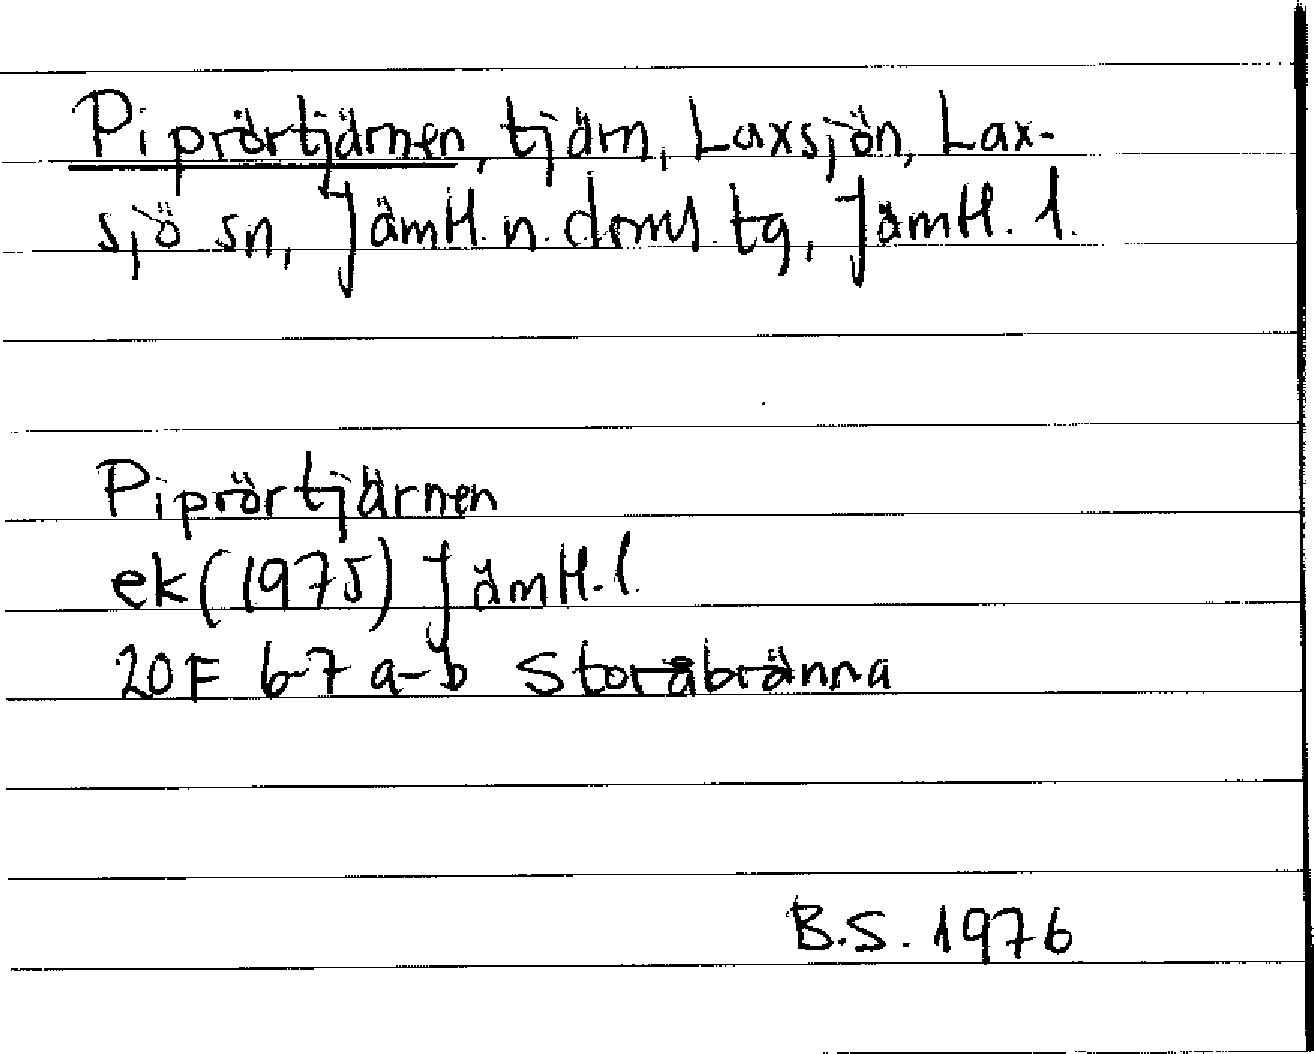 Piprörtjärnen, tjärn, Laxsjön, Lax-
sjö sn, Jämtl. n. doms. tg, Jämtl. l.
Piprörtjärnen
ek (1975) Jämtl. l.
20F 6-7 a-b Storåbränna
B.S. 1976